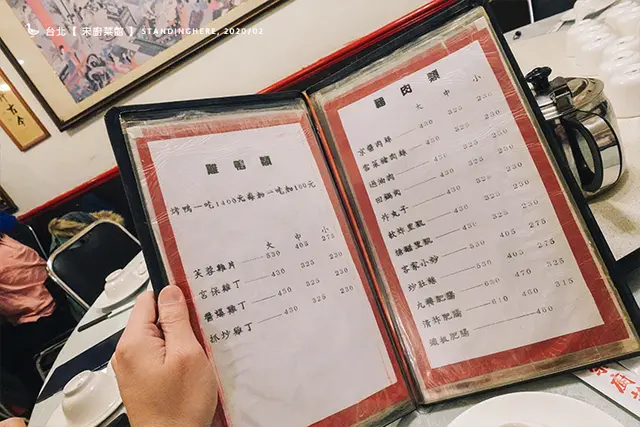 台北【 宋廚菜館 】 STANDINGHERE, 2020/02
雞鴨類
烤鴨一吃1400元每加一吃加100元
大 中 小
芙蓉雞片 530 405 275
宮保雞丁 430 325 230
醬爆雞丁 430 325 230
抓炒雞丁 430 325 230
豬肉類
大 中 小
京醬肉絲 430 325 230
雪菜 肉絲 430 325 230
過油肉 430 325 230
回鍋肉 430 325 230
炸丸子 430 325 230
軟炸里肌
糖醋里肌
客家小炒
炒肚絲 405 275
九轉肥腸 630 470 325
清炸肥腸 610 460 315
肥腸 460